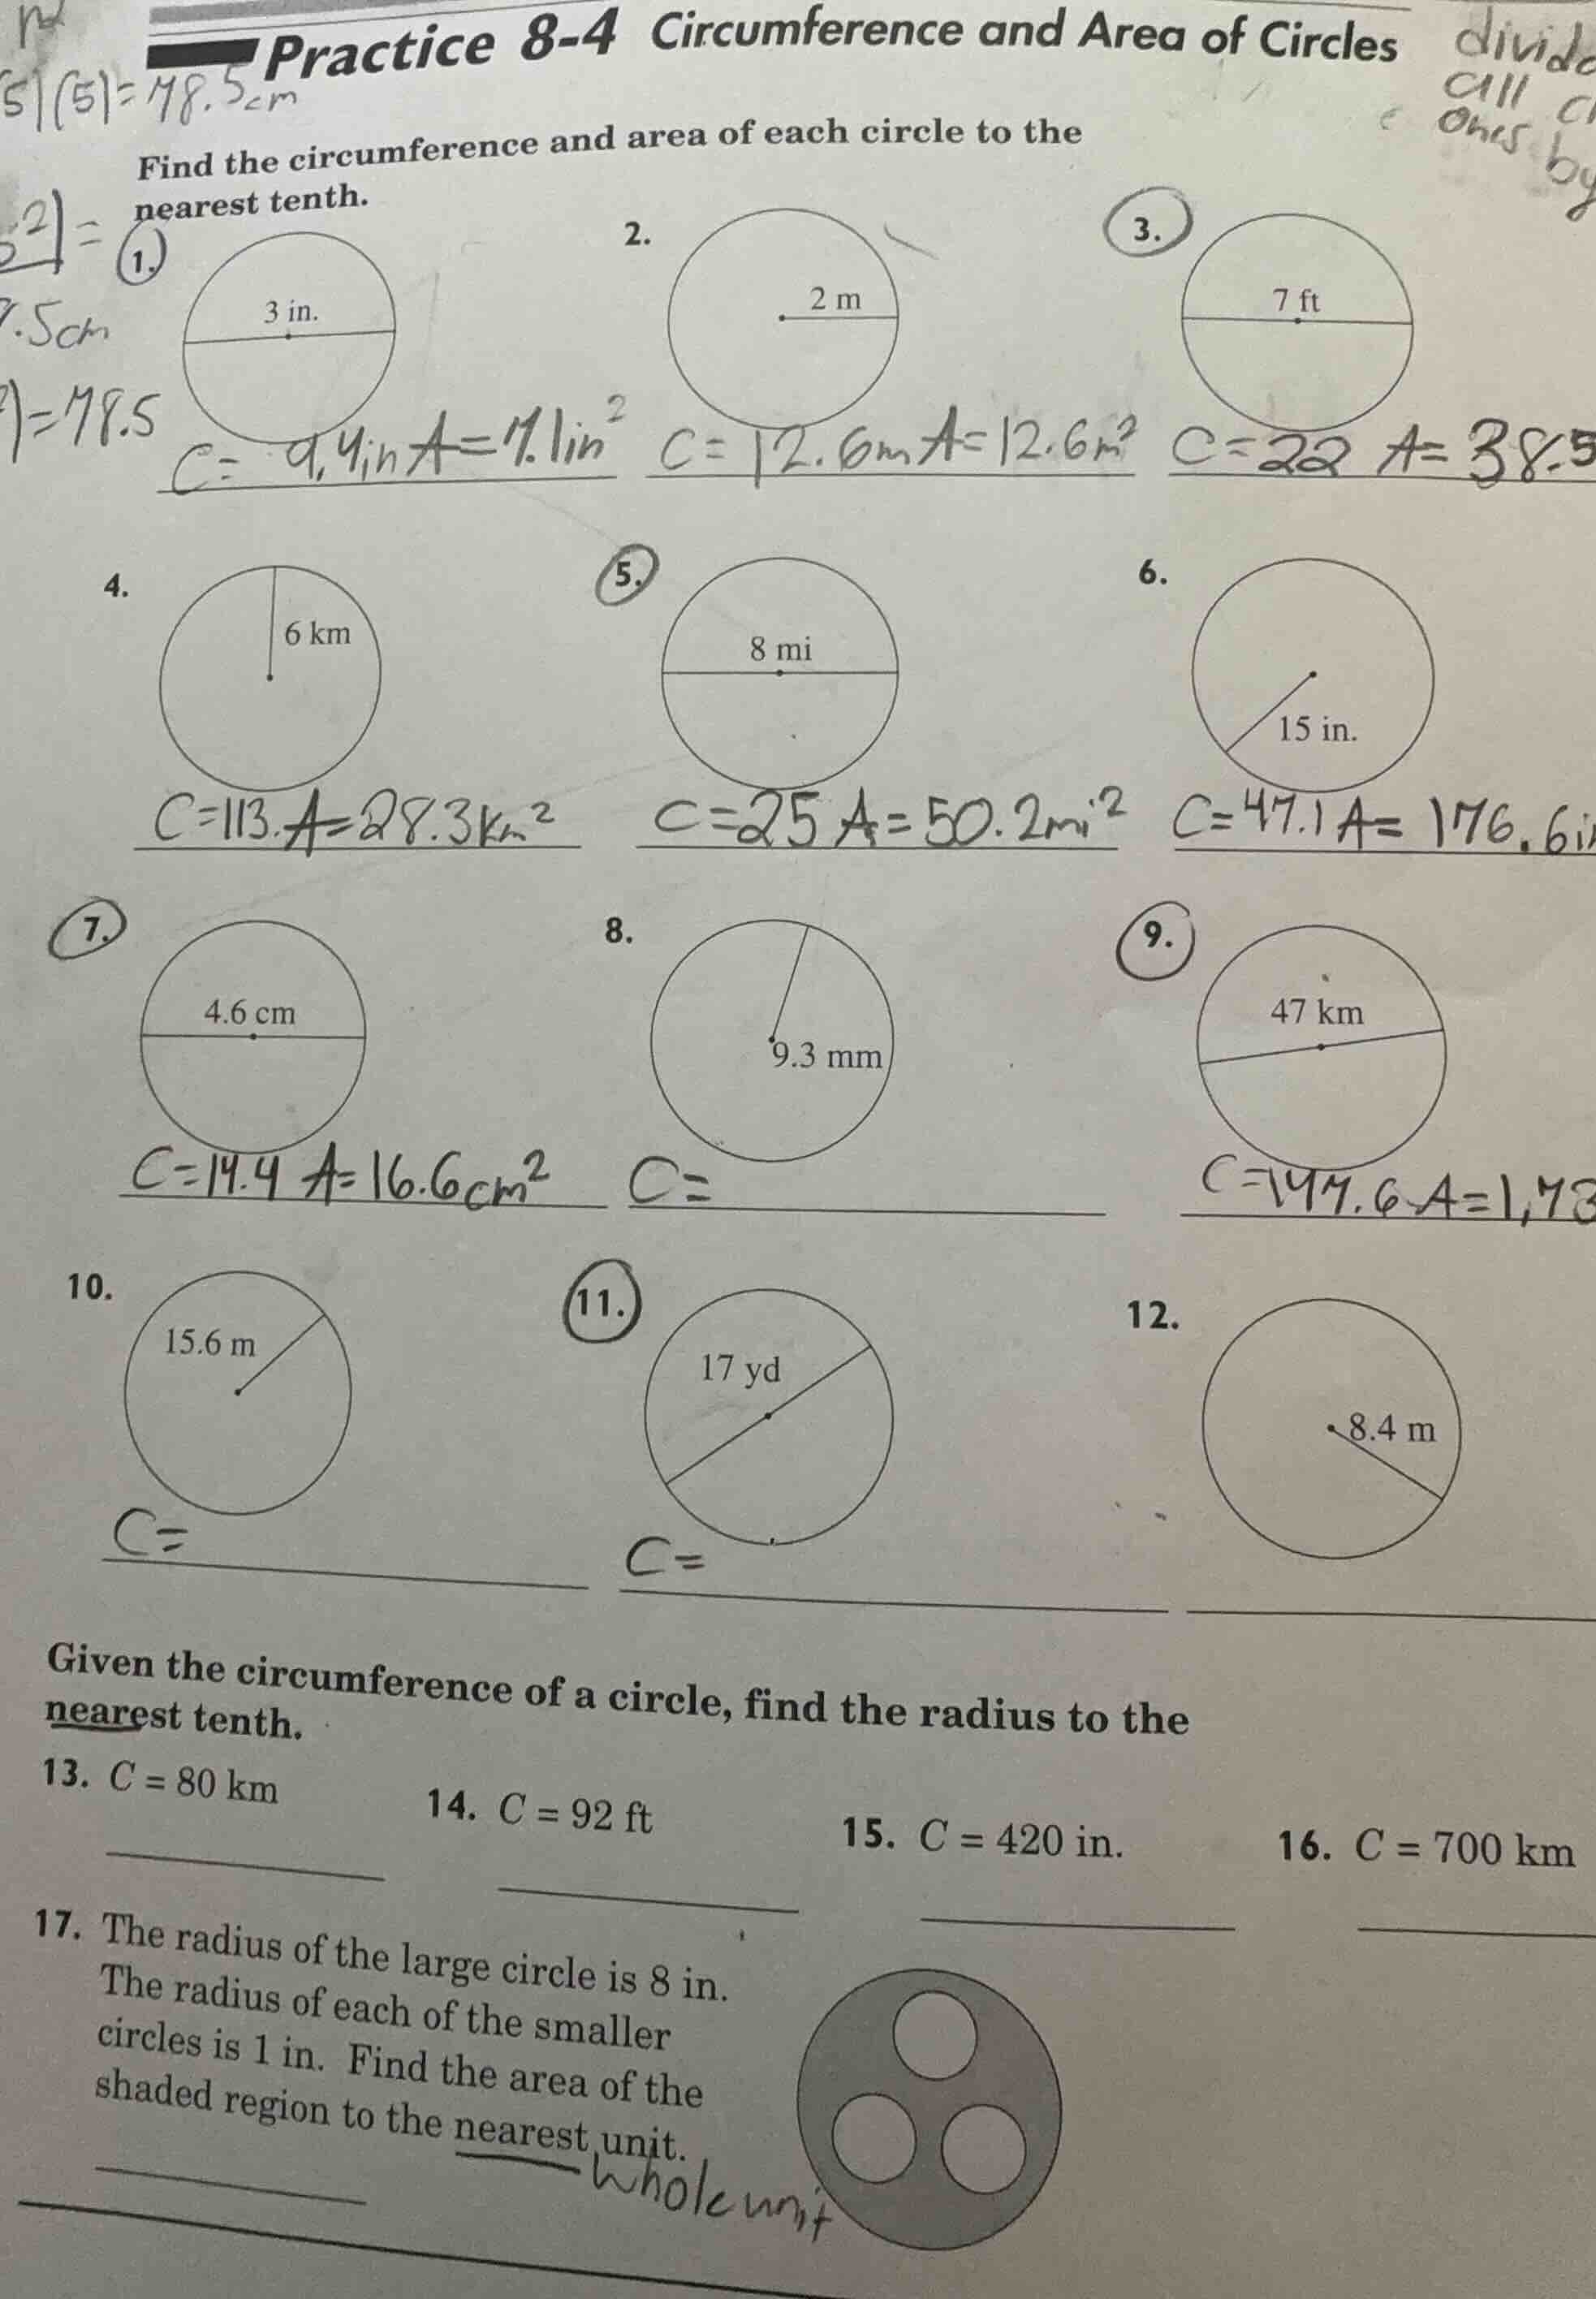 Practice 8-4 Circumference and Area of Circles
5)(5)=78.5cm
all
ones by
Find the circumference and area of each circle to the
nearest tenth.
2)=
.5cm
)=78.5
1.
3 in.
C= 9.4in A=7.1in²
2.
2 m
C=12.6m A=12.6m²
3.
7 ft
C=22 A=38.5
4.
6 km
C=113. A=28.3km²
5.
8 mi
C=25 A=50.2mi²
6.
15 in.
C=47.1 A=176.6in
7.
4.6 cm
C=14.4 A=16.6cm²
8.
9.3 mm
C=
9.
47 km
C=147.6 A=1,73
10.
15.6 m
C=
11.
17 yd
C=
12.
8.4 m
Given the circumference of a circle, find the radius to the
nearest tenth.
13. C = 80 km
14. C = 92 ft
15. C = 420 in.
16. C = 700 km
17. The radius of the large circle is 8 in.
The radius of each of the smaller
circles is 1 in. Find the area of the
shaded region to the nearest unit.
whole unit